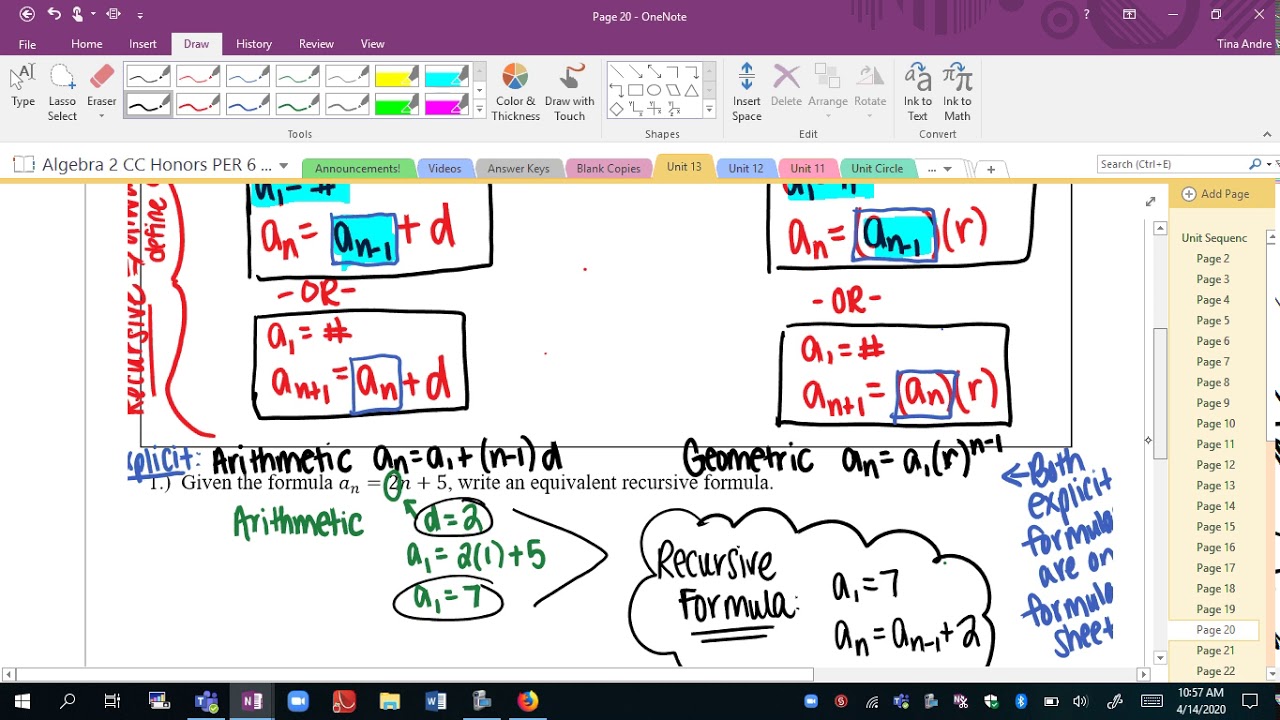 Page 20 - OneNote
?
Tina Andre
File Home Insert Draw History Review View
Type Lasso Select Eraser
Color & Thickness Draw with Touch
Insert Space Delete Arrange Rotate
Ink to Text Ink to Math
Tools Shapes Edit Convert
Algebra 2 CC Honors PER 6 ...
Announcements! Videos Answer Keys Blank Copies Unit 13 Unit 12 Unit 11 Unit Circle ... +
Search (Ctrl+E)
Add Page
Unit Sequenc
Page 2
Page 3
Page 4
Page 5
Page 6
Page 7
Page 8
Page 9
Page 10
Page 11
Page 12
Page 13
Page 14
Page 15
Page 16
Page 17
Page 18
Page 19
Page 20
Page 21
Page 22
Recursive
define
a₁ = #
aₙ = aₙ₋₁ + d
- OR -
a₁ = #
aₙ₊₁ = aₙ + d
aₙ = (aₙ₋₁)(r)
- OR -
a₁ = #
aₙ₊₁ = (aₙ)(r)
xplicit: Arithmetic aₙ = a₁ + (n-1)d Geometric aₙ = a₁(r)ⁿ⁻¹
1.) Given the formula aₙ = 2n + 5, write an equivalent recursive formula.
Arithmetic
d = 2
a₁ = 2(1) + 5
a₁ = 7
Recursive
Formula:
a₁ = 7
aₙ = aₙ₋₁ + 2
← Both
explicit
formula
are on
formula
sheet
10:57 AM
4/14/2020